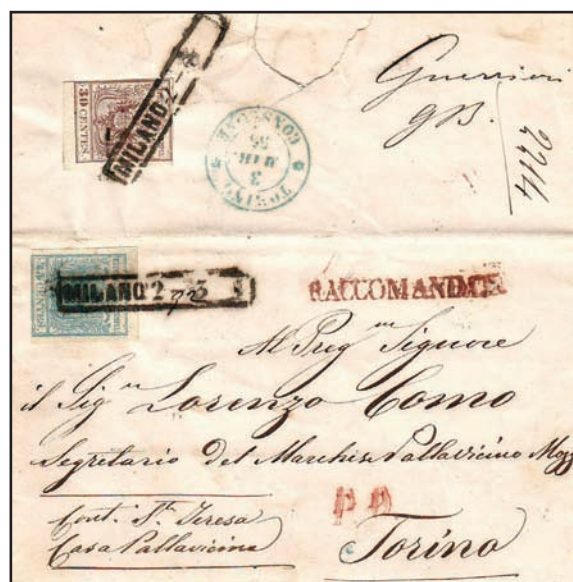 30 CENTES.
MILANO 2
TORINO
3
MAR.
55
CONSEGNE
Guerrieri
GB.
45 CENTES.
MILANO 2
RACCOMANDATA
Al Preg.^m Signore
il Sig.^r Lorenzo Como
Segretario Del Marchese Pallavicino
P D
Cont. S.^ta Teresa
Casa Pallavicino
Torino